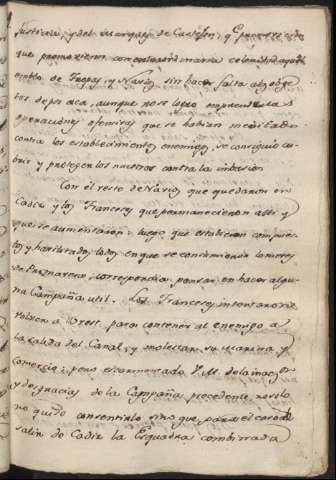 Justicia, y del Marques de Castejon, y Gracias a lo
que promovieron con extraordinaria celeridad
de Tropas, y Navios, sin hacer falta al
to de por aca, aunque no se logro emprender las
operaciones ofensivas que se habian meditado
contra los establecimientos enemigos, se consiguió cu-
brir y proteger los nuestros contra la imbasion.
Con el resto de Navios que quedaron en
Cadiz y los Franceses que permanecieron alli y
que se aumentaron, luego que estubieron compues-
tos y habilitados todos en que se consumieron los meses
de correspondia pensar en hacer algu-
na Campaña util. Los Franceses intentaron
volver a Brest, para contener al enemigo a
la salida del Canal, y molestar su marina y
Comercio; pero escarmentado V. M. de la inaccion
y desgracias de la Campaña precedente no solo
no quiso consentirlo sino que para el caso de
salir de Cadiz la Esquadra combinada